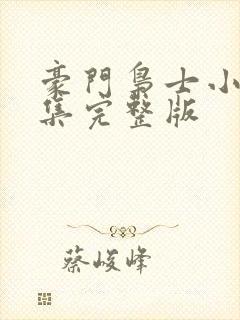 豪門梟士小
集完整版
蔡峻峰